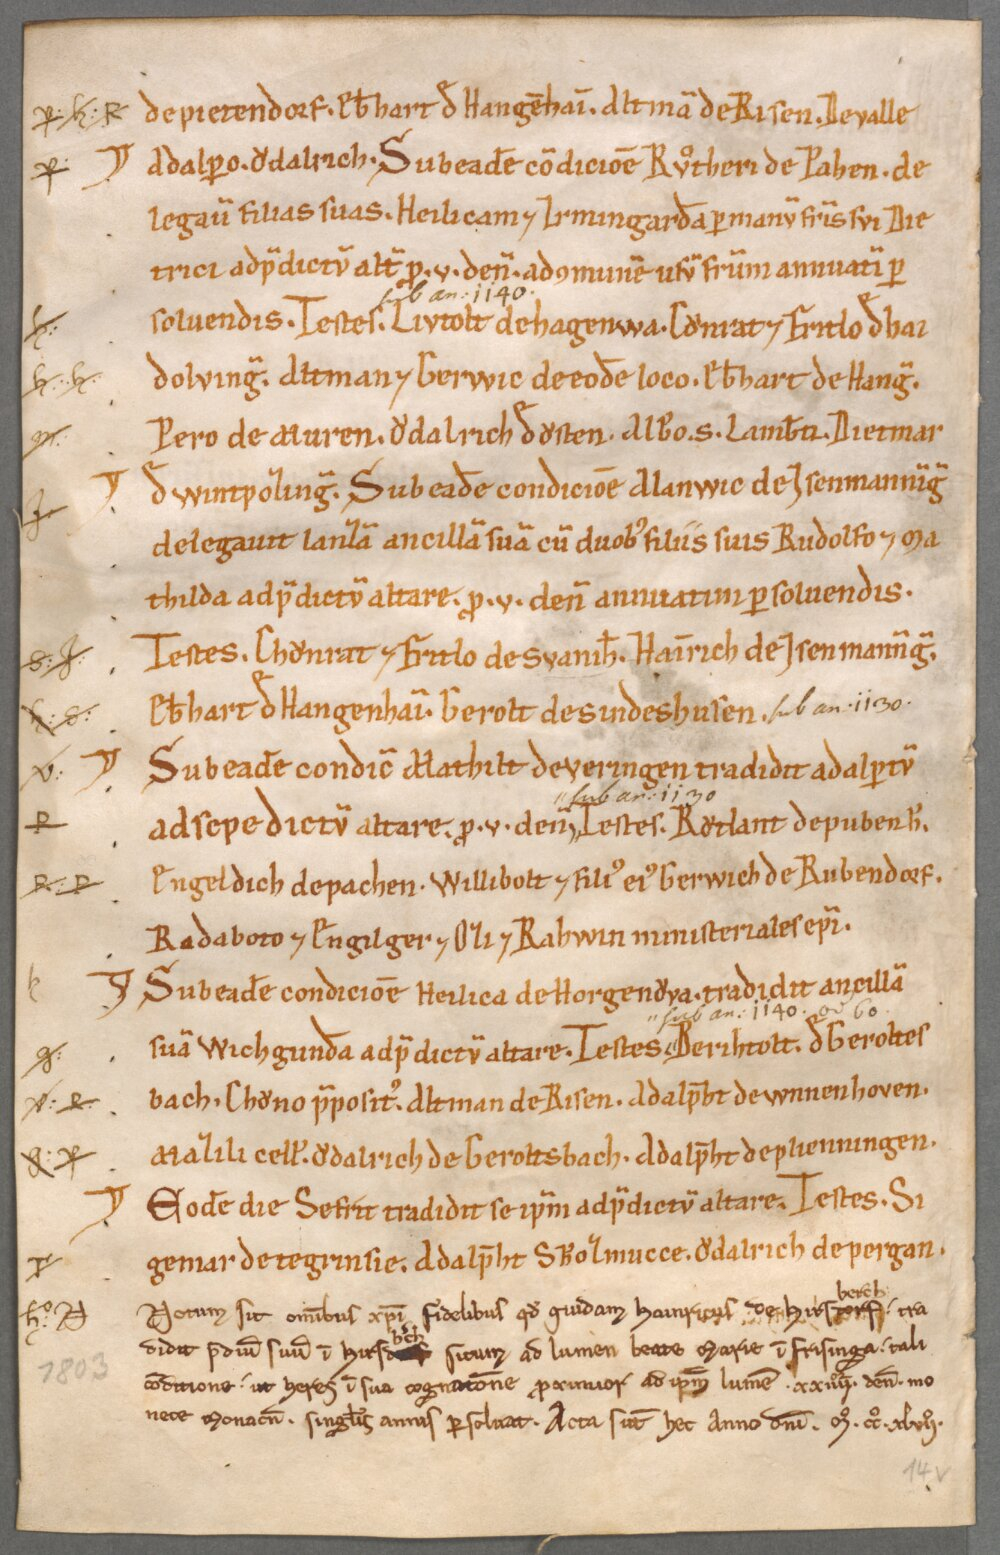 p. h. R depietendorf. Eb̄hart đ Hangēhaı̄. Altmā de Risen. Devalle
p. Adalp̱o. Ǒdalrich. Sub eadē cōdiciōe Rv̊theri de Pahen. de
legaū filias suas. Heilicam ⁊ Irmingardā ꝑ manū frīs svi Die
trici ad p̄dictv̄ alt̄ ꝓ .v. den̄. ad ɔmunē usv̄ frūm annuatī ꝑ
sub an: 1140.
h. soluendis. Testes. Livtolt de hagenwa. Cǒnrat ⁊ Fritlo đ hai
h. h. dolvinḡ. Altman ⁊ Gerwic de eodē loco. Eb̄hart de Hanḡ.
m. Pero de Muren. Ǒdalrich đ ǒsten. Albo .s. Lamb̄ti. Dietmar
J. đ wintpolinḡ. Sub eadē condiciōe Alanwic de Jsenmannīḡ
delegauit lanlā ancillā suā cū duob᷒ filiis suis Rudolfo ⁊ Ma
thilda ad p̄dictv̄ altare. ꝓ .v. den̄ annuatim ꝑsoluendis.
s. J. Testes. Chǒnrat ⁊ Fritlo de svanih̄. Haīrich de Jsenmannīḡ.
h. s. Eb̄hart đ Hangenhaı̄. Gerolt de sindeshusen. sub an. 1130.
v. Sub eadē condic̄ Mathilt de veringen tradidit adalꝑtv̄
sub an: 1130
P ad sepe dictv̄ altare. ꝓ .v. den̄. Testes. Rǒtlant de pubenh̄.
R. P Engeldich de pachen. Willibolt ⁊ fili᷒ ei᷒ Gerwich de Rubendorf.
Radaboto ⁊ Engilger ⁊ Oli ⁊ Rahwin ministeriales ep̄i.
k Sub eadē condiciōe Heilica de Horgenǒva. tradidit ancillā
sub an: 1140. od 60.
g. suā Wichgundā ad p̄dictv̄ altare. Testes. Berihtolt. đ Geroltes
v. R. bach. Chǒno p̄posit᷒. Altman de Risen. Adalp̄ht de wnnenhoven.
g. p. Malili cell̄. Ǒdalrich de Geroltsbach. Adalp̄ht de plienningen.
Eodē die Sefrit tradidit se ip̄m ad p̄dictv̄ altare. Testes. Si
T gemar de tegrinsie. Adalp̄ht Skolmucce. Ǒdalrich de pergan.
berch
h. Notum sit om̄ibus xp̄i fidelibus qđ quidam hainricus de hirstorf. tra
bch
1803 didit p̄diū suū ī hirsdorf situm ad lumen beate Marie ī frisinga. tali
cōditione. ut heres ī sua cognatōne proximior ad ip̄m lumē .xxiiij. den̄. mo
nete Monacn̄. singlis annis ꝑsoluat. Acta sūt hec Anno dn̄i. m̊. cc̊. xlvij̊.
14v